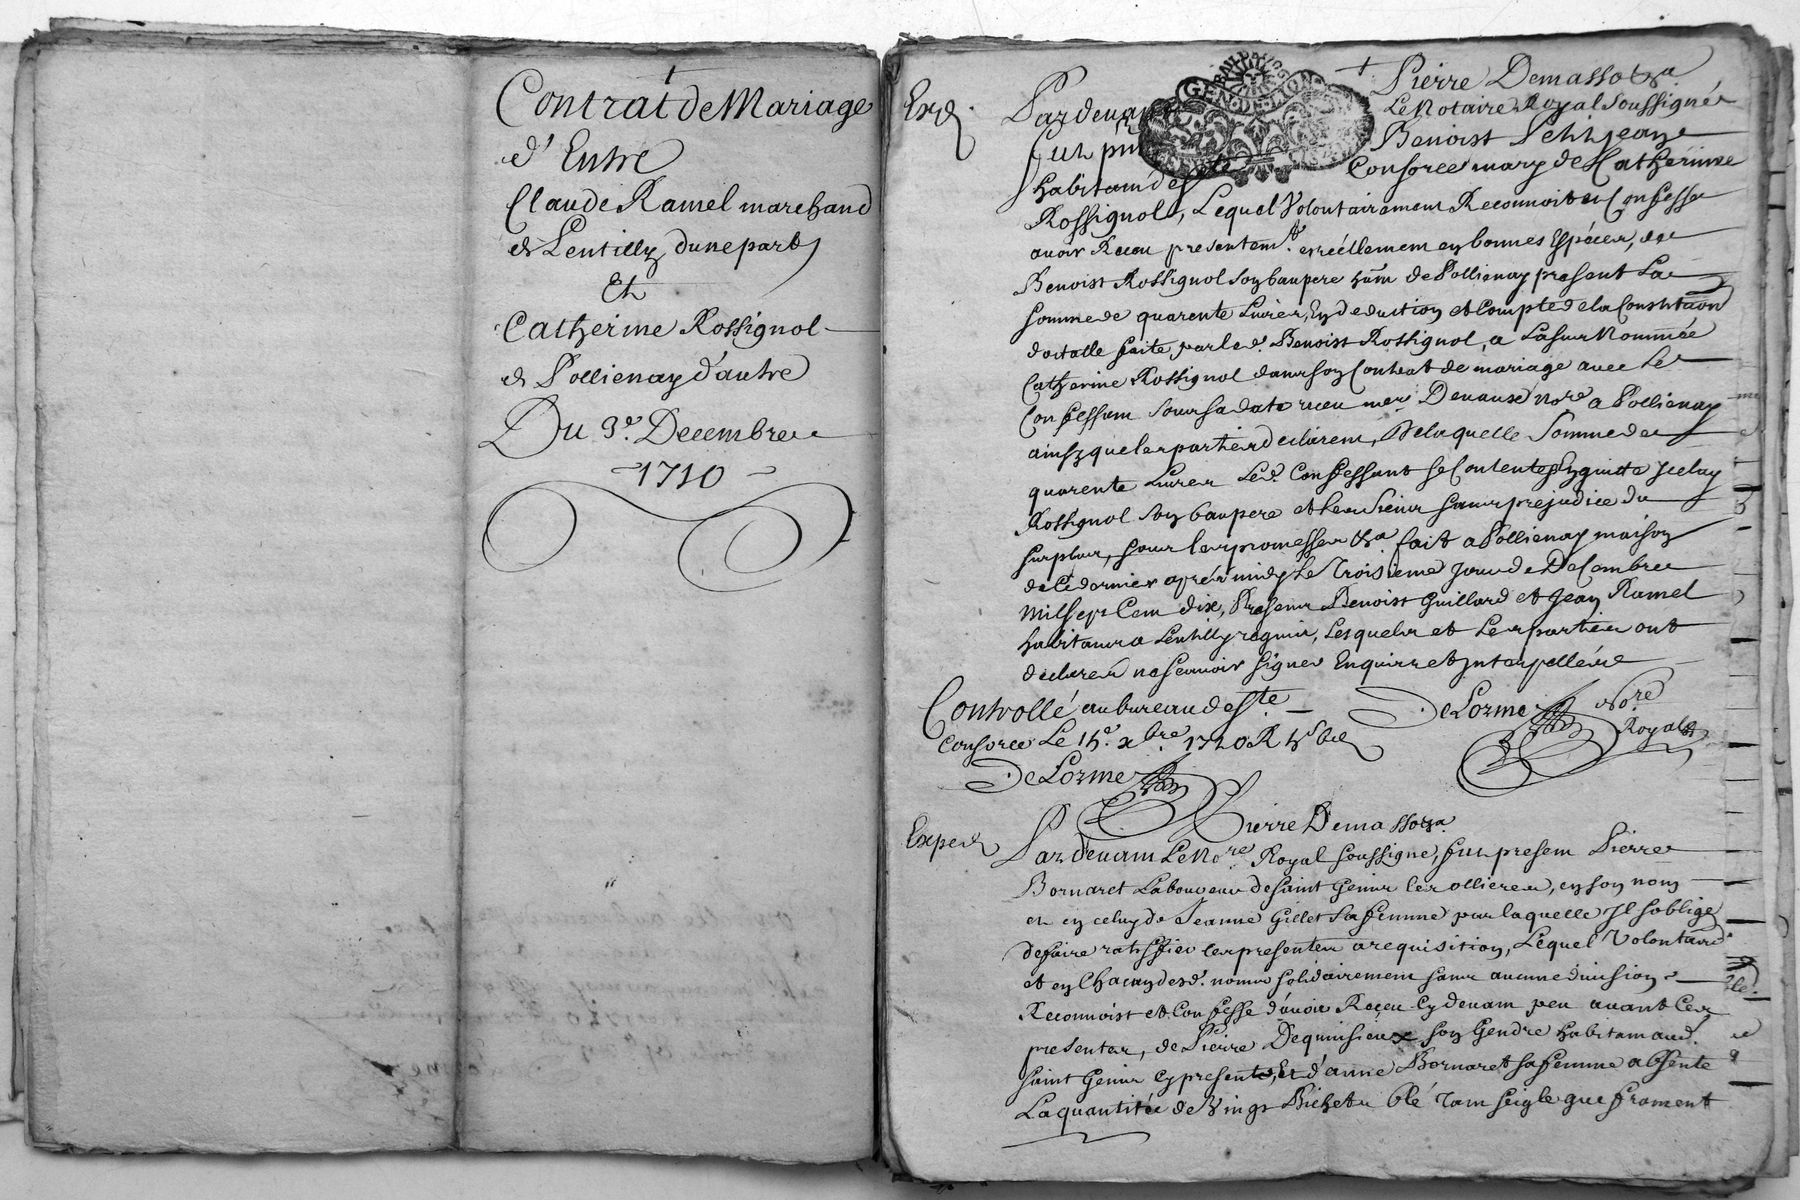 Contrat de Mariage
d'Entre
Claude Ramel marchand
de Lentilly dune part
Et
Catherine Rossignol
de Pollienay d'autre
Du 3e. Decembre
1710
Pierre Demasso &ra
Exp
Pardevant Le Notaire Royal Soussigné
fut pnt Benoist Petitjean
habitant de ste Consorce mary de Catherine
Rossignol, Lequel Volontairement Reconnoit et Confesse
avoir Receu presentemt. et réellement en bonnes Espéces, de
Benoist Rossignol son beaupere hant de Pollienay present La
somme de quarente Livres, En deduction et Compte de la Constitution
dottalle faite par led. Benoist Rossignol, a Lasusnommée
Catherine Rossignol dans son Contrat de mariage avec Le
Confessant sous sa date receu me Devaux Nore a Pollienay
ainsy que les parties declarent, De laquelle Somme de
quarente Livres Led. Confessant se Contente En quitte Jceluy
Rossignol son beaupere et les Siens sans prejudice du
surplus, sous les promesses &ra fait a Pollienay maison
de ce dernier aprés midy Le Troisieme Jour de Decembre
mil sept Cent dix, Presens Benoist Guillard et Jean Ramel
habitans a Lentilly requis, Lesquels et Les parties ont
declarés ne scavoir signer Enquis et Interpellés
Controllé au bureau de ste
Consorce Le 15e. xbre 1710 R
DeLorme
DeLorme Nore
Royal
Pierre Demasso &ra
Exped
Pardevant Le Nore Royal soussigné, fut present Pierre
Bornaret Laboureur de saint Genis les ollieres, en son nom
et en celuy de Jeanne Gillet sa femme par laquelle Jl soblige
de faire ratiffier les presentes a requisition, Lequel Volontaire
et en Chacun desd. noms solidairement sans aucune division
Reconnoist et Confesse d'avoir Receu Cy devant peu avant Ces
presentes, de Pierre Dequinsieux son Gendre habitant aud.
saint Genis Cy present, Et d'anne Bornaret sa femme absente
La quantitée de Vingt Bichets blé tant seigle que froment